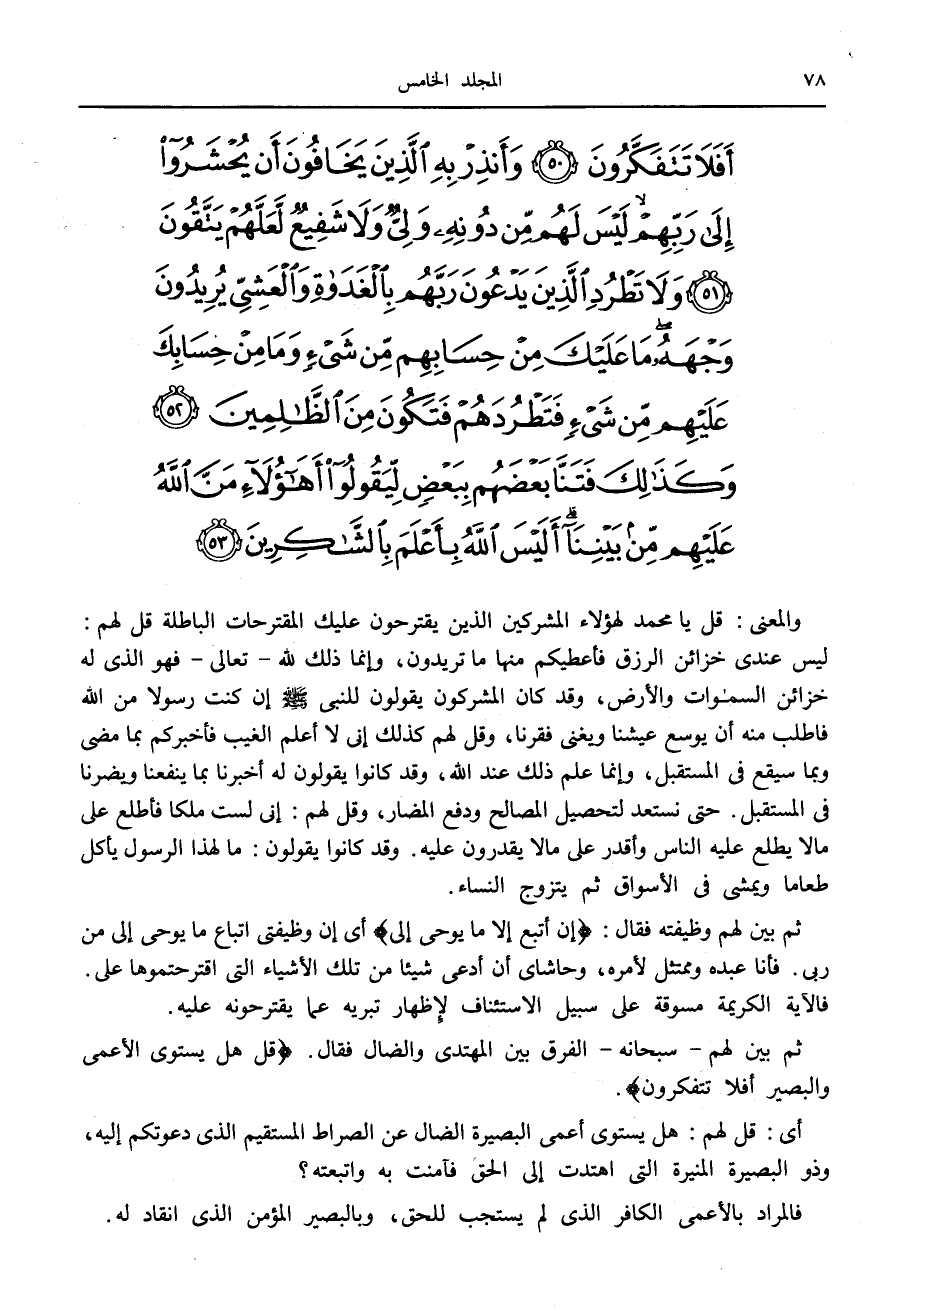 ٧٨ المجلد الخامس
أَفَلَا تَتَفَكَّرُونَ ﴿٥٠﴾ وَأَنذِرْ بِهِ ٱلَّذِينَ يَخَافُونَ أَن يُحْشَرُوٓا۟
إِلَىٰ رَبِّهِمْ ۙ لَيْسَ لَهُم مِّن دُونِهِۦ وَلِىٌّ وَلَا شَفِيعٌ لَّعَلَّهُمْ يَتَّقُونَ
﴿٥١﴾ وَلَا تَطْرُدِ ٱلَّذِينَ يَدْعُونَ رَبَّهُم بِٱلْغَدَوٰةِ وَٱلْعَشِىِّ يُرِيدُونَ
وَجْهَهُۥ ۖ مَا عَلَيْكَ مِنْ حِسَابِهِم مِّن شَىْءٍ وَمَا مِنْ حِسَابِكَ
عَلَيْهِم مِّن شَىْءٍ فَتَطْرُدَهُمْ فَتَكُونَ مِنَ ٱلظَّـٰلِمِينَ ﴿٥٢﴾
وَكَذَٰلِكَ فَتَنَّا بَعْضَهُم بِبَعْضٍ لِّيَقُولُوٓا۟ أَهَـٰٓؤُلَآءِ مَنَّ ٱللَّهُ
عَلَيْهِم مِّنۢ بَيْنِنَآ ۗ أَلَيْسَ ٱللَّهُ بِأَعْلَمَ بِٱلشَّـٰكِرِينَ ﴿٥٣﴾
والمعنى : قل يا محمد لهؤلاء المشركين الذين يقترحون عليك المقترحات الباطلة قل لهم :
ليس عندى خزائن الرزق فأعطيكم منها ما تريدون، وإنما ذلك لله - تعالى - فهو الذى له
خزائن السمـٰوات والأرض، وقد كان المشركون يقولون للنبى ﷺ إن كنت رسولا من الله
فاطلب منه أن يوسع عيشنا ويغنى فقرنا، وقل لهم كذلك إنى لا أعلم الغيب فأخبركم بما مضى
وبما سيقع فى المستقبل، وإنما علم ذلك عند الله، وقد كانوا يقولون له أخبرنا بما ينفعنا ويضرنا
فى المستقبل. حتى نستعد لتحصيل المصالح ودفع المضار، وقل لهم : إنى لست ملكا فأطلع على
مالا يطلع عليه الناس وأقدر على مالا يقدرون عليه. وقد كانوا يقولون : ما لهذا الرسول يأكل
طعاما ويمشى فى الأسواق ثم يتزوج النساء.
ثم بين لهم وظيفته فقال : ﴿إن أتبع إلا ما يوحى إلى﴾ أى إن وظيفتى اتباع ما يوحى إلى من
ربى. فأنا عبده وممتثل لأمره، وحاشاى أن أدعى شيئا من تلك الأشياء التى اقترحتموها على.
فالآية الكريمة مسوقة على سبيل الاستئناف لإظهار تبريه عما يقترحونه عليه.
ثم بين لهم - سبحانه - الفرق بين المهتدى والضال فقال. ﴿قل هل يستوى الأعمى
والبصير أفلا تتفكرون﴾.
أى : قل لهم : هل يستوى أعمى البصيرة الضال عن الصراط المستقيم الذى دعوتكم إليه،
وذو البصيرة المنيرة التى اهتدت إلى الحق فآمنت به واتبعته؟
فالمراد بالأعمى الكافر الذى لم يستجب للحق، وبالبصير المؤمن الذى انقاد له.